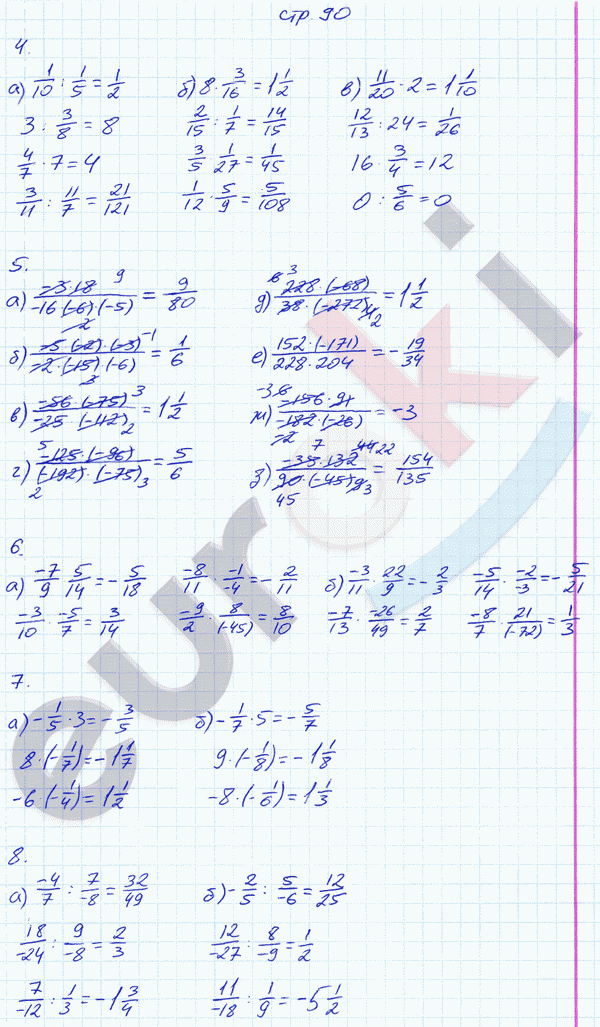 стр 90
4.
а) 1/10 : 1/5 = 1/2 б) 8 · 3/16 = 1 1/2 в) 11/20 · 2 = 1 1/10
3 : 3/8 = 8 2/15 : 1/7 = 14/15 12/13 : 24 = 1/26
4/7 · 7 = 4 3/5 · 1/27 = 1/45 16 · 3/4 = 12
3/11 : 11/7 = 21/121 1/12 · 5/9 = 5/108 0 : 5/6 = 0
5.
а) -3·18 9 / -16·(-6)·(-5) -2 = 9/80 д) 6 3 228·(-68) / 38·(-272) 4 2 = 1 1/2
б) -5·(-2)·(-3) -1 / -2·(-15)·(-6) 3 = 1/6 е) 152·(-171) / 228·204 = - 19/34
в) -56·(-75) 3 / -25·(-112) 2 = 1 1/2 ж) -3 6 -156·91 / -182·(-26) -2 = -3
г) 5 -125·(-96) / (-192)·(-75) 2 3 = 5/6 з) 7 44 22 -35·132 / 90·(-45) 9 3 45 = 154/135
6.
а) -7/9 · 5/14 = - 5/18 -8/11 · -1/-4 = - 2/11 б) -3/11 · 22/9 = - 2/3 -5/14 · -2/-3 = - 5/21
-3/10 · -5/7 = 3/14 -9/2 · 8/(-45) = 8/10 -7/13 · -26/49 = 2/7 -8/7 · 21/(-72) = 1/3
7.
а) - 1/5 · 3 = - 3/5 б) - 1/7 · 5 = - 5/7
8 · (- 1/7) = - 1 1/7 9 · (- 1/8) = - 1 1/8
-6 · (- 1/4) = 1 1/2 -8 · (- 1/6) = 1 1/3
8.
а) -4/7 : 7/-8 = 32/49 б) - 2/5 : 5/-6 = 12/25
18/-24 : 9/-8 = 2/3 12/-27 : 8/-9 = 1/2
7/-12 : 1/3 = - 1 3/4 11/-18 : 1/9 = - 5 1/2
euroki